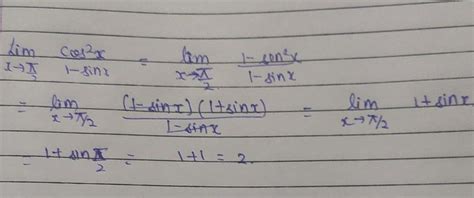 lim x→π/2 cos²x / 1-sinx = lim x→π/2 1-sin²x / 1-sinx
= lim x→π/2 (1-sinx)(1+sinx) / 1-sinx = lim x→π/2 1+sinx
= 1+sin π/2 = 1+1 = 2.